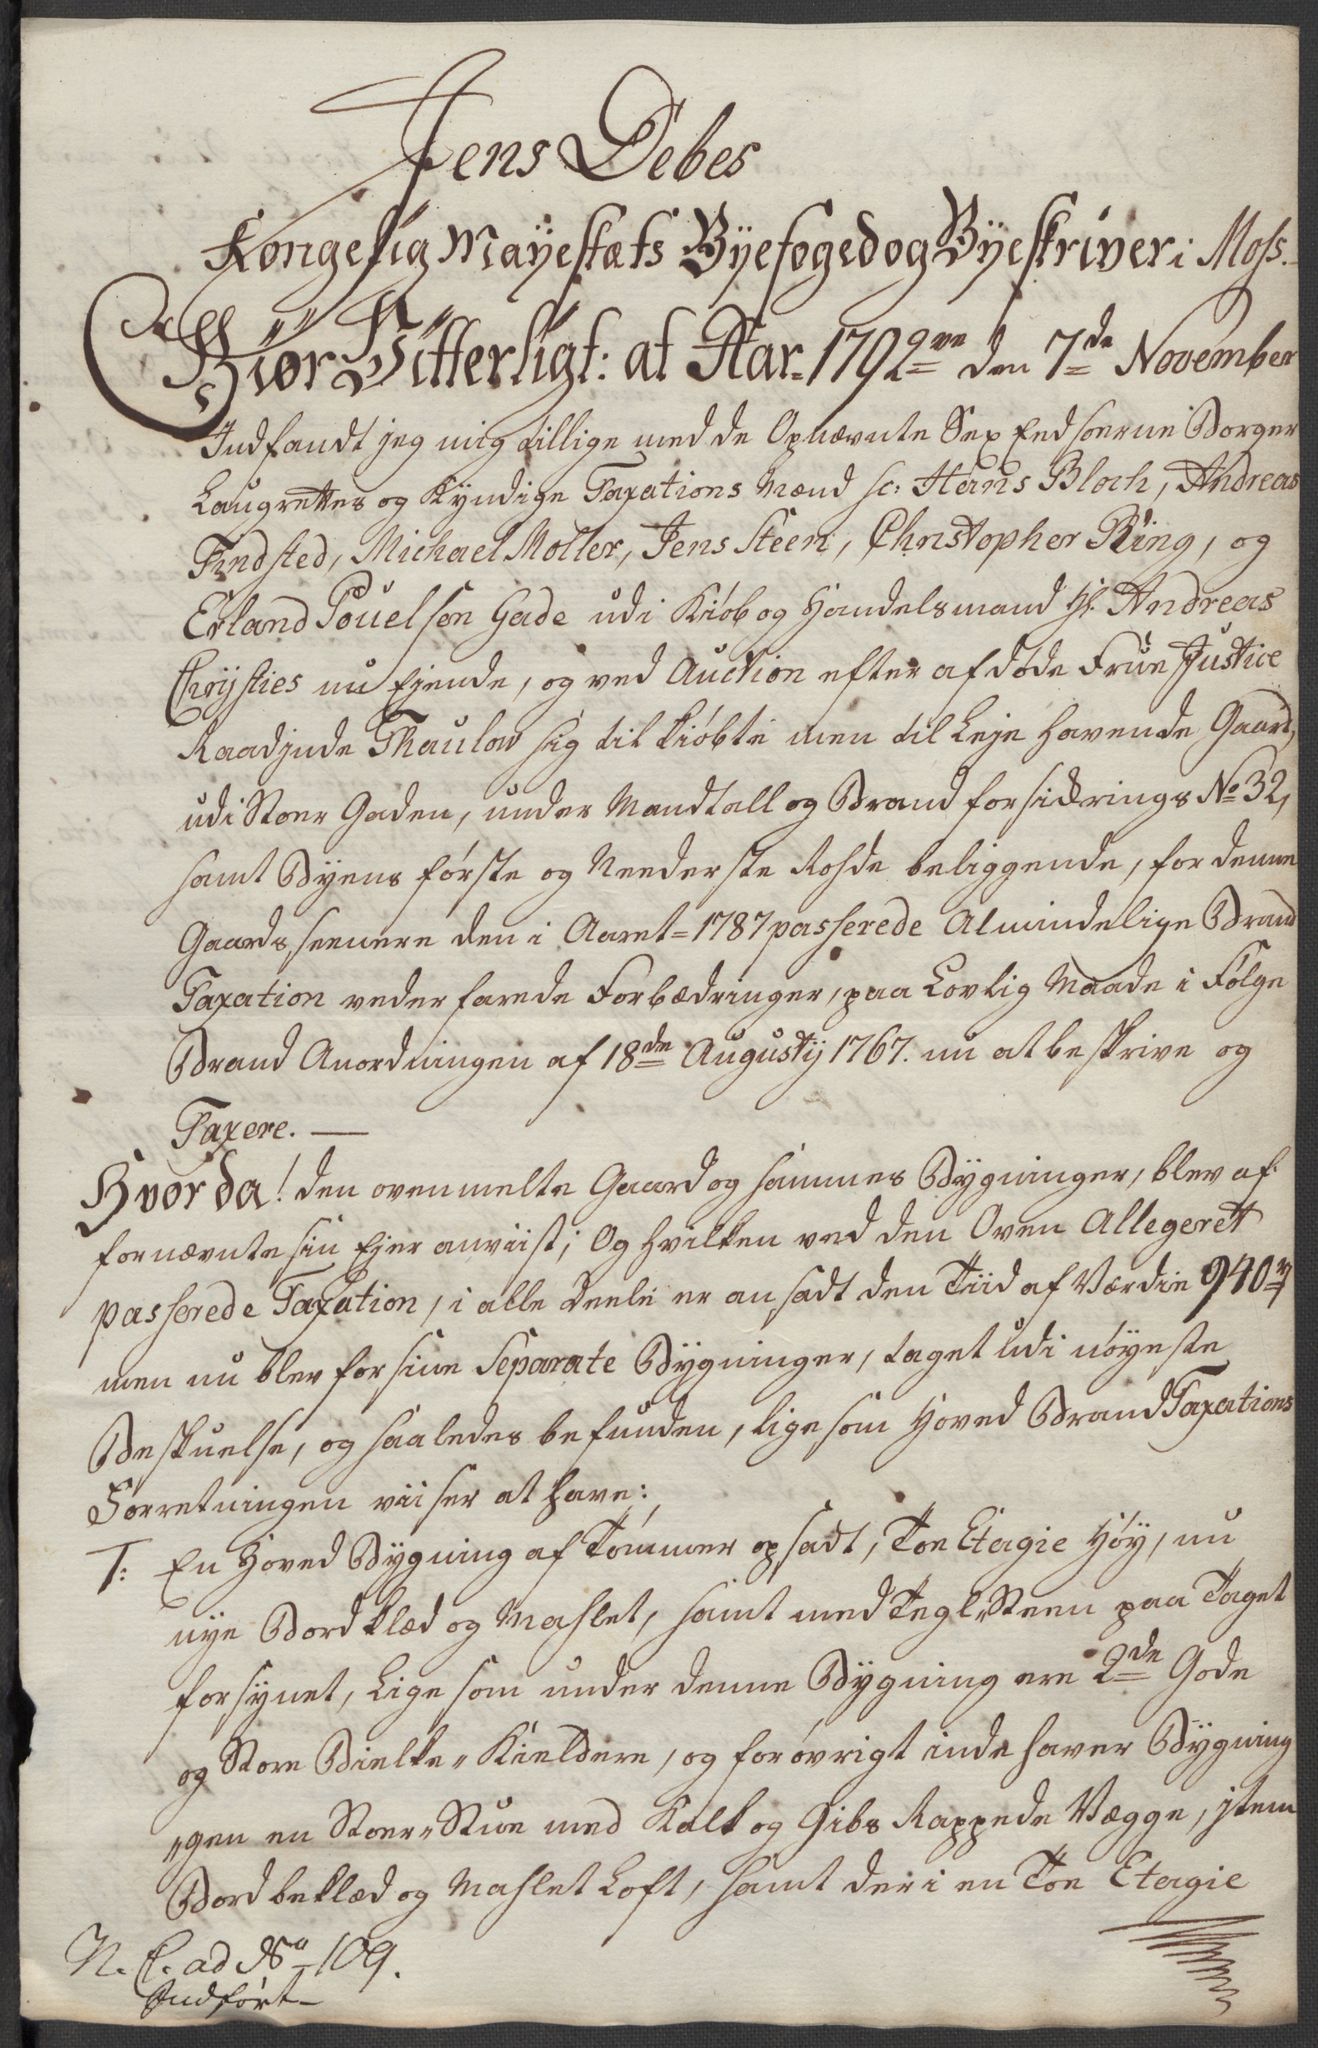 Jens Debes
Kongelig Mayestæts Byefoged og Byeskriver i Moss.
Giør Vitterligt: at Aar 1792ve den 7de November
Indfandt jeg mig tillige med de Opnævnte Sex Eedsoerne Borger
Laugrettes og Kyndige Taxations Mænd sc: Hans Bloch, Andreas
Findsted, Michael Moller, Jens Steen, Christopher Ring, og
Erland Pouelsøn Gade udi Kiøb og Handelsmand Hr. Andreas
Chrysties nu Ejende, og ved Auction efter afdøde Frue Justice
Raadjnde Thaulow sig tilkiøbte men til Leje havende Gaard,
udi Stoer Gaden, under Mandtall og Brandforsickrings No 32,
samt Byens første og Neederste Rohde beliggende, for denne
Gaards seenere den i Aaret 1787 passerede Almindelige Brand
Taxation vederfarede Forbædringer, paa Lovlig Maade i Følge
Brand Anordningen af 18de Augustij 1767. nu at beskrive og
Taxere. —
Hvorda! den ovenmelte Gaard og sammes Bygninger, blev af
fornævnte sin Ejer anviist; Og hvilken ved den Oven Allegeret
passerede Taxation, i alle Deele er ansadt den Tiid af Værdie 940 rd
men nu blev for sine Separate Bygninger, taget udi nøyeste
Beskuelse, og saaledes befunden, lige som Hoved Brand Taxations
Forretningen viiser at have:
1: En Hoved Bygning af Tømmer opsadt, Toe Etagie Høy, nu
nye Bordklæd og Mahlet, samt med Tegl-Steen paa Taget
forsynet, Lige som under denne Bygning ere 2de Gode
og Store Bielke-Kieldere, og forøvrigt indehaver Bygning
„gen en Stoer-Stue med Kalk og Gibs Rappede Vægge, jtem
Bordbeklæd og Mahlet Loft, samt der i en Toe Etagie
N. C. ad No 109.
Indført